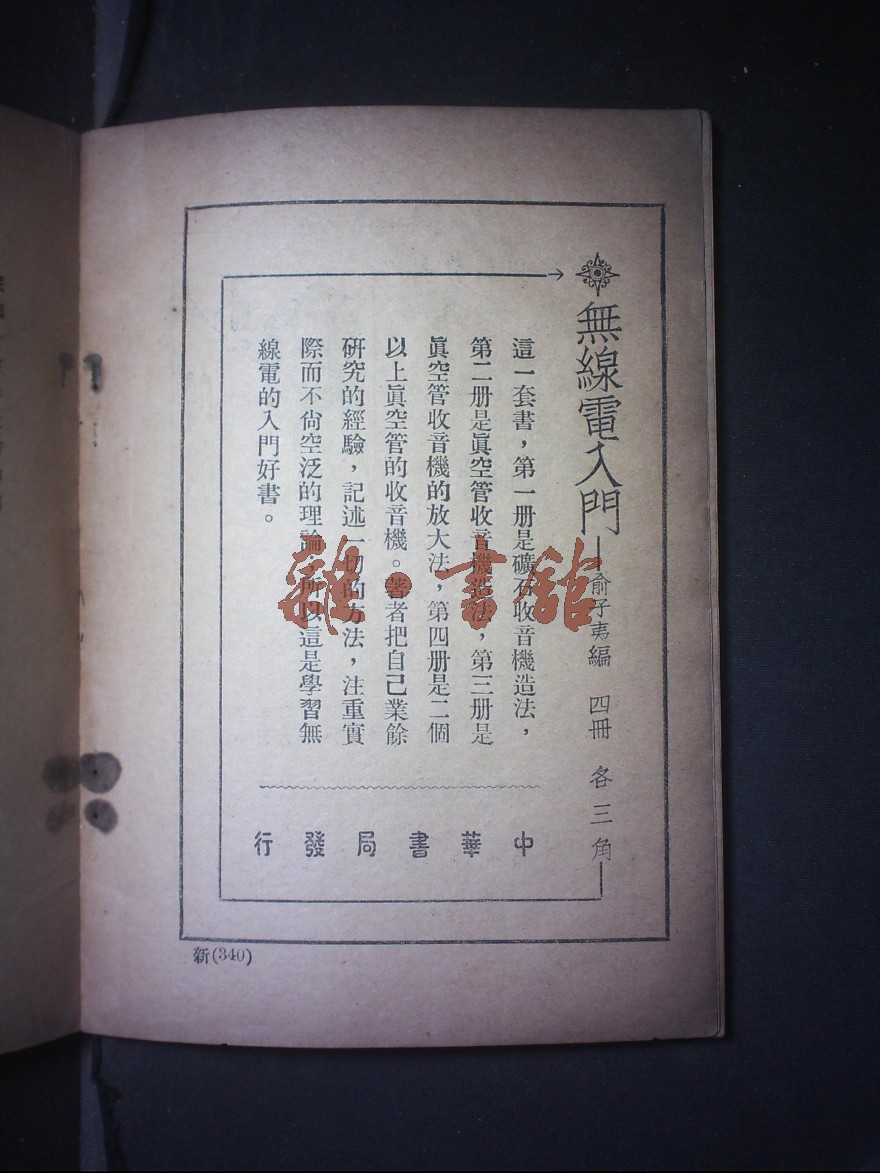 無線電入門
俞子夷編 四冊 各三角
這一套書，第一册是礦石收音機造法，
第二册是眞空管收音機造法，第三册是
眞空管收音機的放大法，第四册是二個
以上眞空管的收音機。著者把自己業餘
研究的經驗，記述一切的方法，注重實
際而不尙空泛的理論，所以這是學習無
線電的入門好書。
中華書局發行
新(340)
雜·書舘